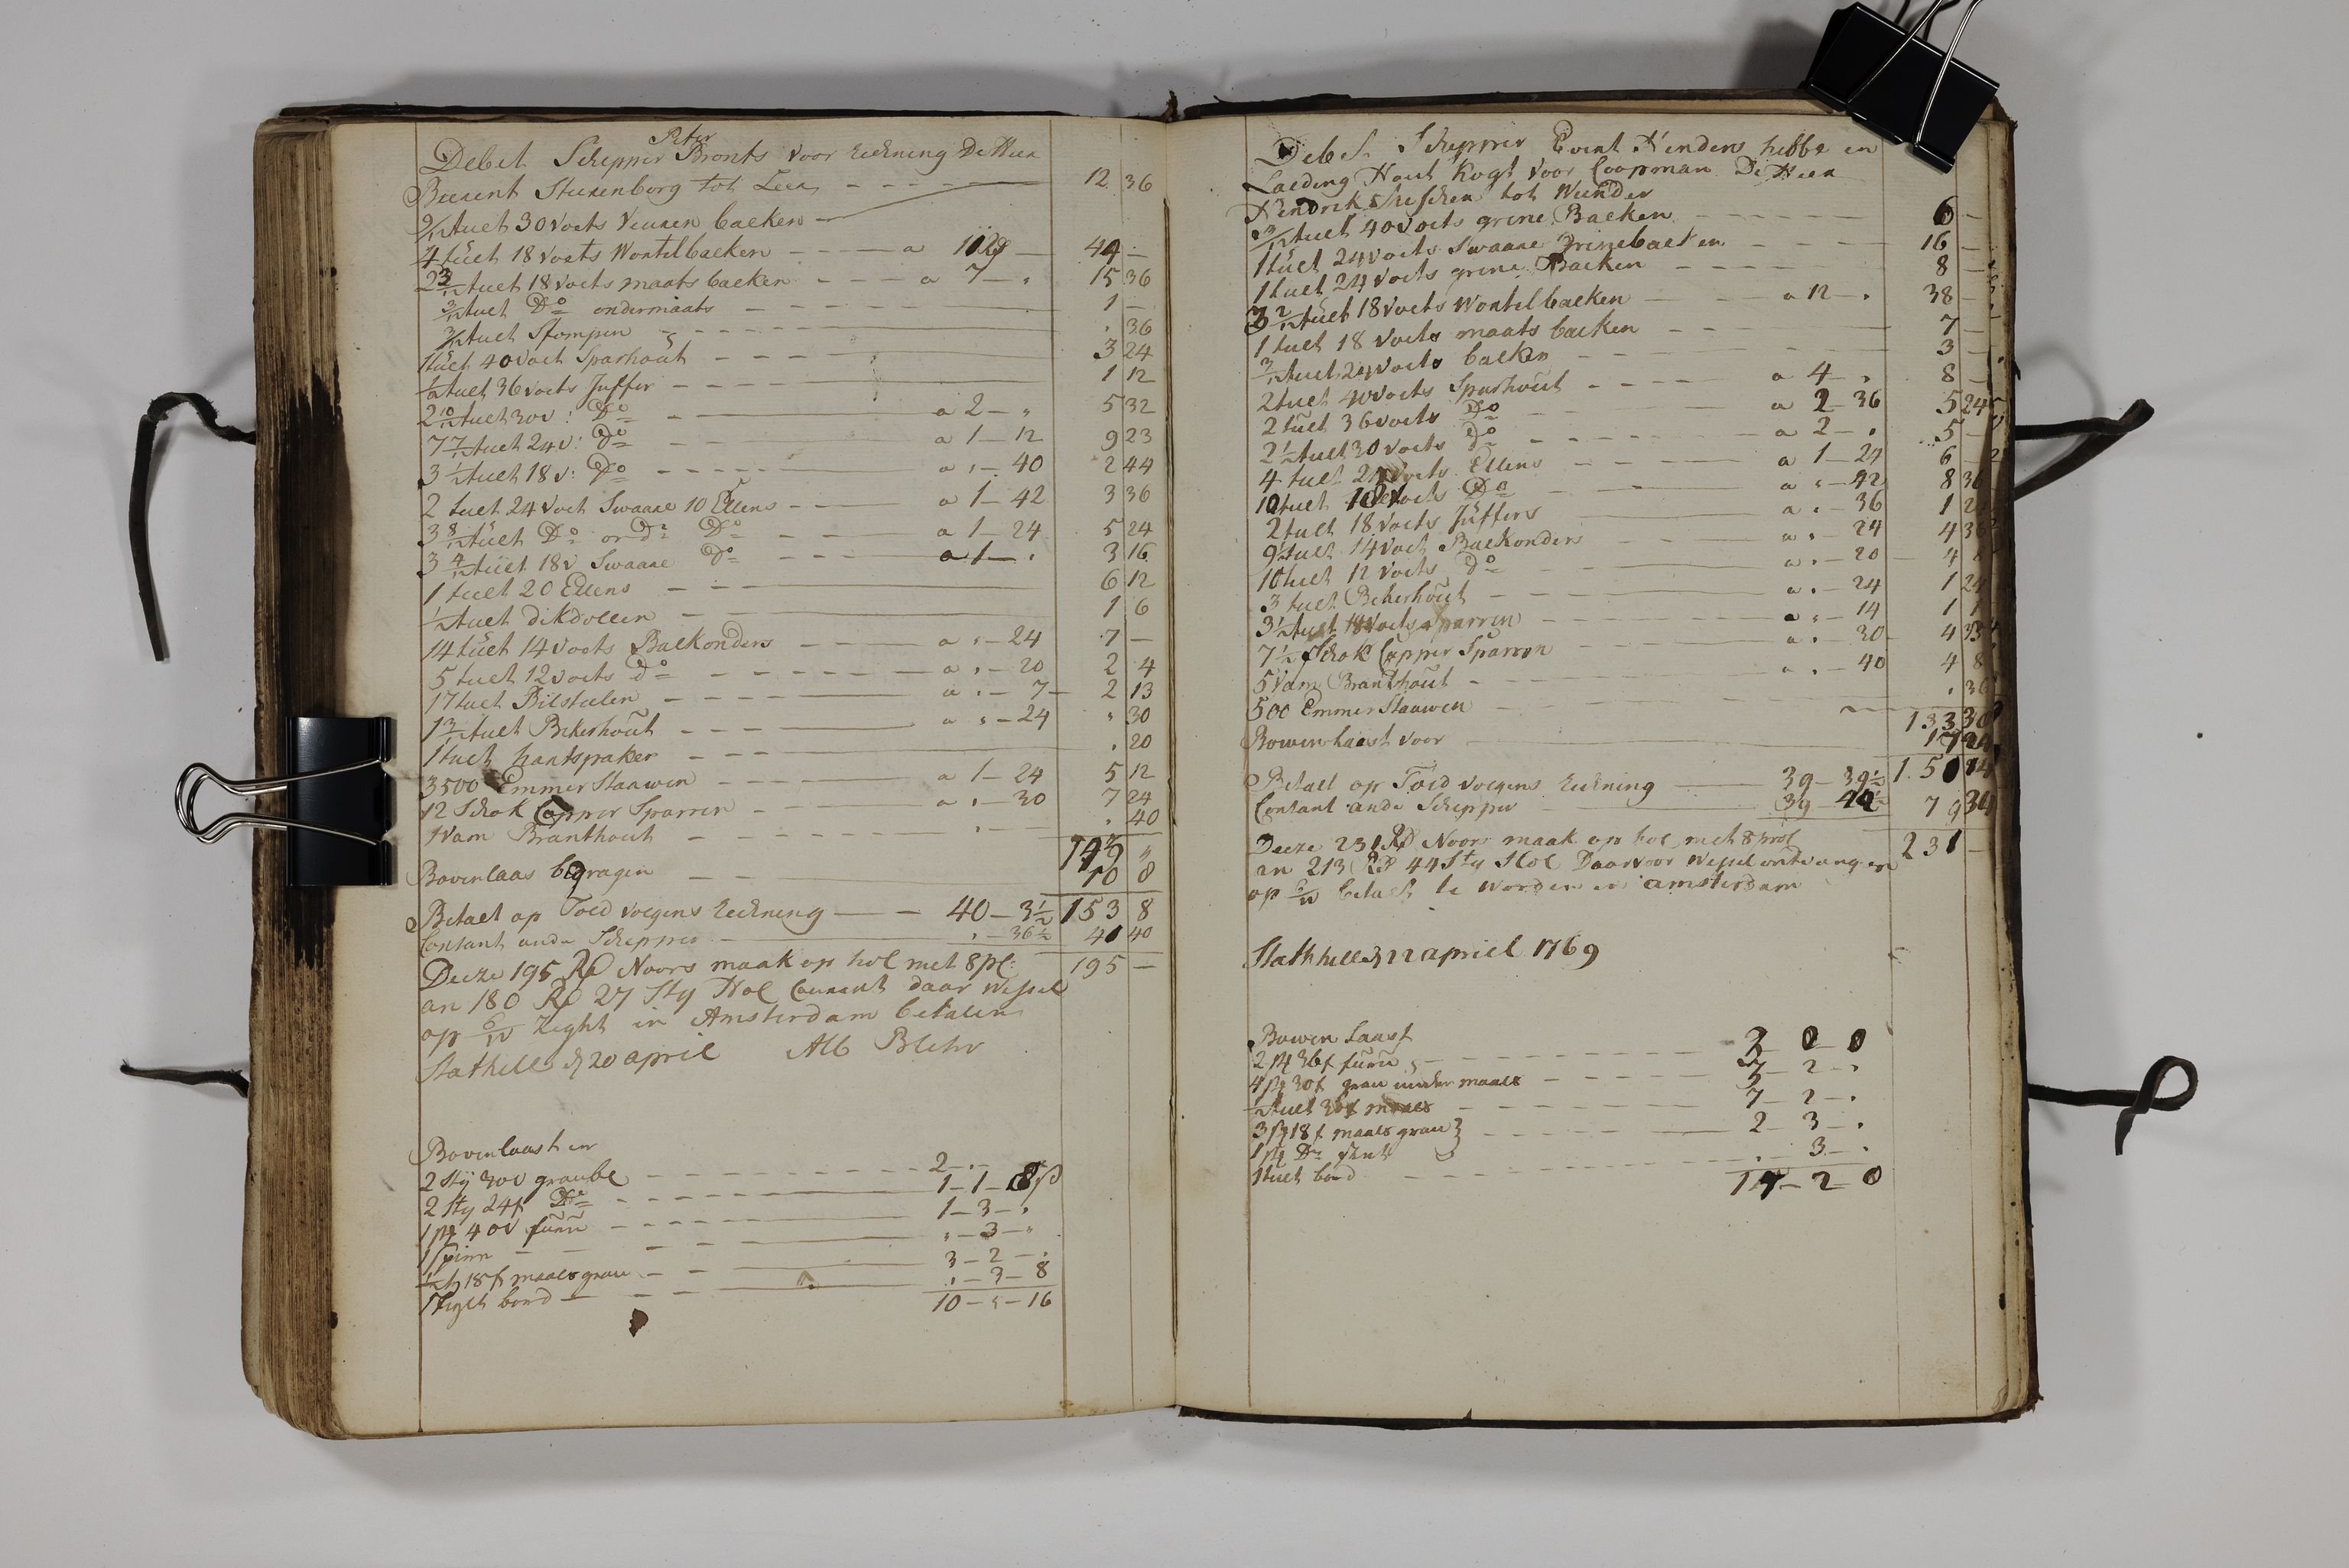 Peter
Debet Schipper Bronts voor reckning De Heer
Beerent Stuerenborg tot Leer 12 36
9/12 tuelt 30 voets veuren balken
4 tuelt 18 voets Wontelbalken a
2 3/12 tuelt 18 voets maats balken a 7 — „ 15 36
3/12 tuelt Do ondermaats 1 —
3/12 tuelt Stompen „ 36
1 tuelt 40 voet Sparhout 3 24
1/2 tuelt 36 voets Juffer 1 12
2 10/12 tuelt 30 v: Do a 2 — „ 5 32
7 7/12 tuelt 24 v: Do a 1 — 12 9 23
3 1/2 tuelt 18 v: Do a „ — 40 2 44
2 tuelt 24 voet Swaare 10 Ellens a 1 — 42 3 36
3 8/12 tuelt Do ord: Do a 1 — 24 5 24
3 4/12 tuelt 18 v Swaare Do a 1 — „ 3 16
1 tuelt 20 Ellens 6 12
1/2 tuelt dikdollen 1 6
14 tuelt 14 voets Balkonders a „ — 24 7 —
5 tuelt 12 voets do a „ — 20 2 4
17 tuelt Bilstuelen a „ — 7 — 2 13
1 3/12 tuelt Bekerhout a „ — 24 „ 30
1 tuelt hantspaker „ 20
3500 Emmer Staawen a 1 — 24 5 12
12 Schok Capper Sparren a „ — 30 7 24
1 Vam Branthout „ — „ 40
Bovenlaas bedragen 10 8
Betaelt op Told volgens reckning 40 — 3 1/2 153 8
Contant ande Schipper „ — 36 1/2 41 40
Deeze 195 Rd Noors maak op hol met 8 pC: 195 —
an 180 Rd 27 Sty Hol Courant daar wessel
op 6/w Zight in Amsterdam betalen
Stathelle d 20 april Alb Blehr
Bovenlaast en
2 Sty 30 v graubl 2 — „
2 Sty 24 f Do 1 — 1 — 8 ß
1 st 40 v furu 1 — 3 — „
1 Spirr „ — 3 — „
1/2 t 18 f maals grau 3 — 2 — „
1 tuelt bord „ — 3 — 8
10 — „ — 16
Debet Schipper Evert Hinders hebbe en
Laeding Hout kogt voor Coopman De Heer
Hendrik tot Weender
3/12 tuelt 40 voets grene Balken 6 —
1 tuelt 24 voets Swaare Grenebalken 16 —
1 tuelt 24 voets grene Balken 8 —
3 2/12 tuelt 18 voets Wontelbalken a 12 — „ 38 —
1 tuelt 18 voets maats balken 7 —
3/12 tuelt 24 voets balken 3 —
2 tuelt 40 voets Sparhout a 4 — „ 8 —
2 tuelt 36 voets Do a 2 — 36 5 24
2 1/2 tuelt 30 voets do a 2 — „ 5 —
4 tuelt 24 voets Ellens a 1 — 24 6
10 tuelt voets Do a „ — 42 8 36
2 tuelt 18 voets Juffers a „ — 36 1 24
9 1/2 tuelt 14 voet Balkonders a „ — 24 4 36
10 tuelt 12 voets do a „ — 20 4 8
3 tuelt Bekerhout a „ — 24 1 24
3 1/2 tuelt 18 voets Sparren a „ — 14 1 1
7 1/2 Schok Capper Sparren a „ — 30 4 33
5 Vam Branthout a „ — 40 4 8
500 Emmer Staawen „ 36
133 30
Bowenlaast voor 17 24
Betaelt op Told volgens reckning 39 — 39 1/2 151
Contant ande Schipper 39 — 42 1/2 79 34
Deeze 231 Rd Noors maak op hol met 8 proc 231 —
an 213 Rd 44 Sty Hol Daarvoor wessel ontvangen
op 6/w betaelt te worden in amsterdam
Stathelle d 22 april 1769
Bowen Laast
2 st 36 f furu 2 0 0
4 st 30 f grau under maals 3 — 2 — „
1/2 tuelt 30 f maals 7 — 2 — „
3 st 18 f maals grau 2 — 3 — „
1 st Do
1 tuelt bord „ 3 — „
17 — 2 — 0